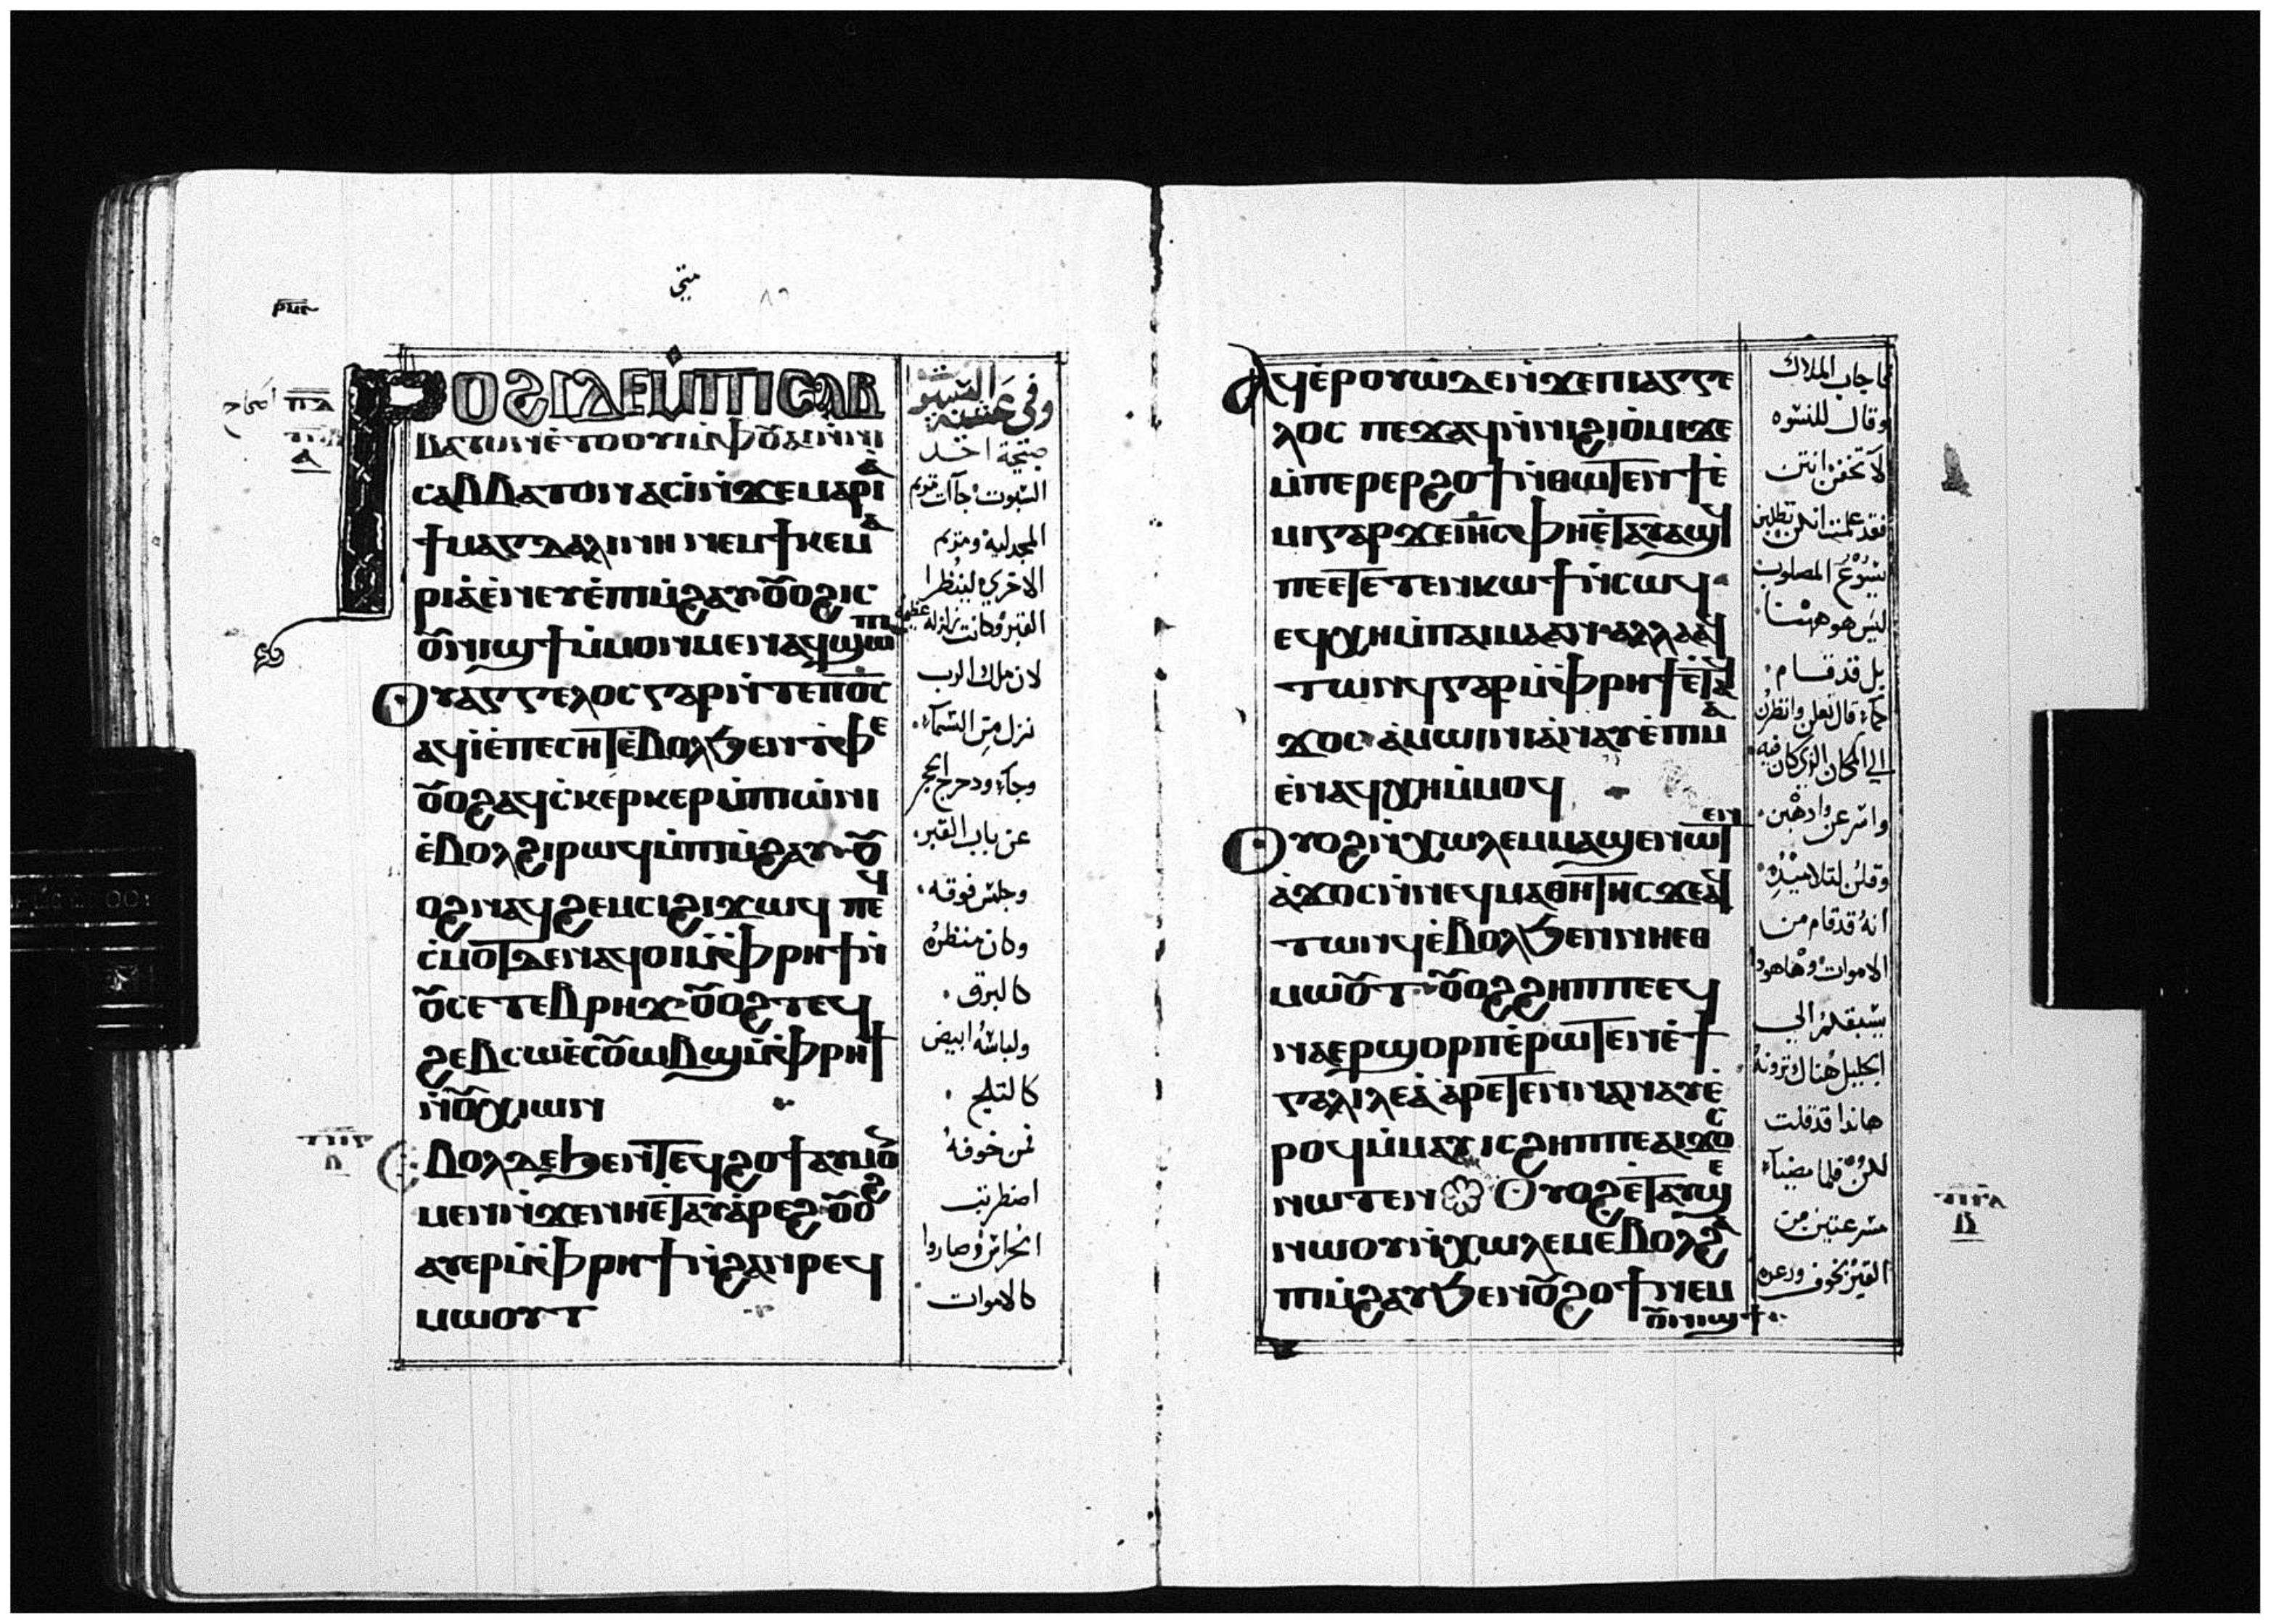 ⲣⲟϩⲓ ⲇⲉ ⲙ̀ⲡⲓⲥⲁⲃ
ⲃⲁⲧⲟⲛ ⲉ̀ⲧⲟⲟⲩⲓ ⲙ̀ⲫⲟⲩⲁⲓ ⲛ̀ⲛⲓ
ⲥⲁⲃⲃⲁⲧⲟⲛ ⲁⲥⲓ̀ ⲛ̀ϫⲉ ⲙⲁⲣⲓⲁ̀
ϯⲙⲁⲅⲇⲁⲗⲓⲛⲏ ⲛⲉⲙ ϯⲕⲉⲙⲁ
ⲣⲓⲁ̀ ⲉ̀ⲛⲉⲩ ⲉ̀ⲡⲓⲙ̀ϩⲁⲩ ⲟⲩⲟϩ ⲓⲥ
ⲟⲩⲛⲓϣϯ ⲙ̀ⲙⲟⲛⲙⲉⲛ ⲁϥϣⲱⲡⲓ
ⲟⲩⲁⲅⲅⲉⲗⲟⲥ ⲅⲁⲣ ⲛ̀ⲧⲉ ⲡⲟ̅ⲥ̅
ⲁϥⲓ̀ ⲉ̀ⲡⲉⲥⲏⲧ ⲉ̀ⲃⲟⲗ ϧⲉⲛ ⲧⲫⲉ
ⲟⲩⲟϩ ⲁϥⲥ̀ⲕⲉⲣⲕⲉⲣ ⲙ̀ⲡⲓⲱ̀ⲛⲓ
ⲉ̀ⲃⲟⲗ ϩⲓⲣⲱϥ ⲙ̀ⲡⲓⲙ̀ϩⲁⲩ ⲟⲩ
ⲟϩ ⲛⲁϥϩⲉⲙⲥⲓ ϩⲓϫⲱϥ ⲡⲉϥ
ⲥ̀ⲙⲟⲧ ⲇⲉ ⲛⲁϥⲟⲓ ⲙ̀ⲫⲣⲏϯ ⲛ̀
ⲟⲩⲥⲉⲧⲉⲃⲣⲏϫ ⲟⲩⲟϩ ⲧⲉϥ
ϩⲉⲃⲥⲱ ⲉ̀ⲥⲟⲩⲱⲃϣ ⲙ̀ⲫⲣⲏϯ
ⲛ̀ⲟⲩⲭⲓⲱⲛ
ⲉⲃⲟⲗ ⲇⲉ ϧⲉⲛ ⲧⲉϥϩⲟϯ ⲁⲩⲙⲟⲛ
ⲙⲉⲛ ⲛ̀ϫⲉ ⲛⲏ ⲉ̀ⲧⲁⲩⲁ̀ⲣⲉϩ ⲟⲩⲟϩ
ⲁⲩⲉⲣ ⲙ̀ⲫⲣⲏϯ ⲛ̀ϩⲁⲛⲣⲉϥ
ⲙⲱⲟⲩⲧ
السبوت جآات مريم
المجدليه ومريم
الاخري لينظرا
القبر وكانت زلزله عظيمه
لان ملاك الرب
نزل من السمآء
وجآء ودحرج الحجر
عن باب القبر
وجلس فوقه
وكان منظره
كالبرق
ولباسه ابيض
كالثلج
فمن خوفه
اضطربت
الحراس وصاروا
كالاموات
ⲁϥⲉ̀ⲣⲟⲩⲱ ⲇⲉ ⲛ̀ϫⲉ ⲡⲓⲁⲅⲅⲉ
ⲗⲟⲥ ⲡⲉϫⲁϥ ⲛ̀ⲛⲓϩⲓⲟ̀ⲙⲓ ϫⲉ
ⲙ̀ⲡⲉⲣⲉⲣϩⲟϯ ⲛ̀ⲑⲱⲧⲉⲛ ϯⲉ̀
ⲙⲓ ⲅⲁⲣ ϫⲉ ⲓⲏ̅ⲥ̅ ⲫⲏ ⲉ̀ⲧⲁⲩⲁϣϥ
ⲡⲉⲧⲉⲧⲉⲛⲕⲱϯ ⲛ̀ⲥⲱϥ
ⲉϥⲭⲏ ⲙ̀ⲡⲁⲓⲙⲁ ⲁⲛ ⲁⲗⲗⲁ ⲁϥ
ⲧⲱⲛϥ ⲅⲁⲣ ⲙ̀ⲫⲣⲏϯ ⲉ̀ⲧⲁϥ
ϫⲟⲥ ⲁ̀ⲙⲱⲓⲛⲓ ⲁ̀ⲛⲁⲩ ⲉ̀ⲡⲓⲙⲁ
ⲉ̀ⲛⲁϥⲭⲏ ⲙ̀ⲙⲟϥ
ⲟⲩⲟϩ ⲛ̀ⲭⲱⲗⲉⲙ ⲙⲁϣⲉⲛⲱⲧⲉⲛ
ⲁ̀ϫⲟⲥ ⲛ̀ⲛⲉϥⲙⲁⲑⲏⲧⲏⲥ ϫⲉ ⲁϥ
ⲧⲱⲛϥ ⲉ̀ⲃⲟⲗ ϧⲉⲛ ⲛⲏⲉⲑ
ⲙⲱⲟⲩⲧ ⲟⲩⲟϩ ϩⲏⲡⲡⲉ ⲉϥ
ⲛⲁⲉⲣϣⲟⲣⲡ ⲉ̀ⲣⲱⲧⲉⲛ ⲉ̀ϯ
ⲅⲁⲗⲓⲗⲉⲁ̀ ⲁ̀ⲣⲉⲧⲉⲛⲛⲁⲛⲁⲩ ⲉ̀
ⲣⲟϥ ⲙ̀ⲙⲁⲩ ⲓⲥ ϩⲏⲡⲡⲉ ⲁⲓϫⲟⲥ
ⲛⲱⲧⲉⲛ ⲟⲩⲟϩ ⲉ̀ⲧⲁⲩϣⲉ
ⲛⲱⲟⲩ ⲛ̀ⲭⲱⲗⲉⲙ ⲉⲃⲟⲗ ϩⲁ
ⲡⲓⲙ̀ϩⲁⲩ ϧⲉⲛ ⲟⲩϩⲟϯ ⲛⲉⲙ
ⲟⲩⲛⲓϣϯ
فاجاب الملاك
وقال للنسوه
لا تخفن انتن
فقد علمت انكن تطلبن
يسوع المصلوب
ليس هو ههنا
بل قد قام
كما قال تعالن وانظرن
الي المكان الذي كان فيه
واسرعن واذهبن
وقلن لتلاميذه
انه قد قام من
الاموات وهاهوذا
يسبقكم الي
الجليل هناك ترونه
هانذا قد قلت
لكن فلما مضيا
مسرعتين من
القبر بخوف